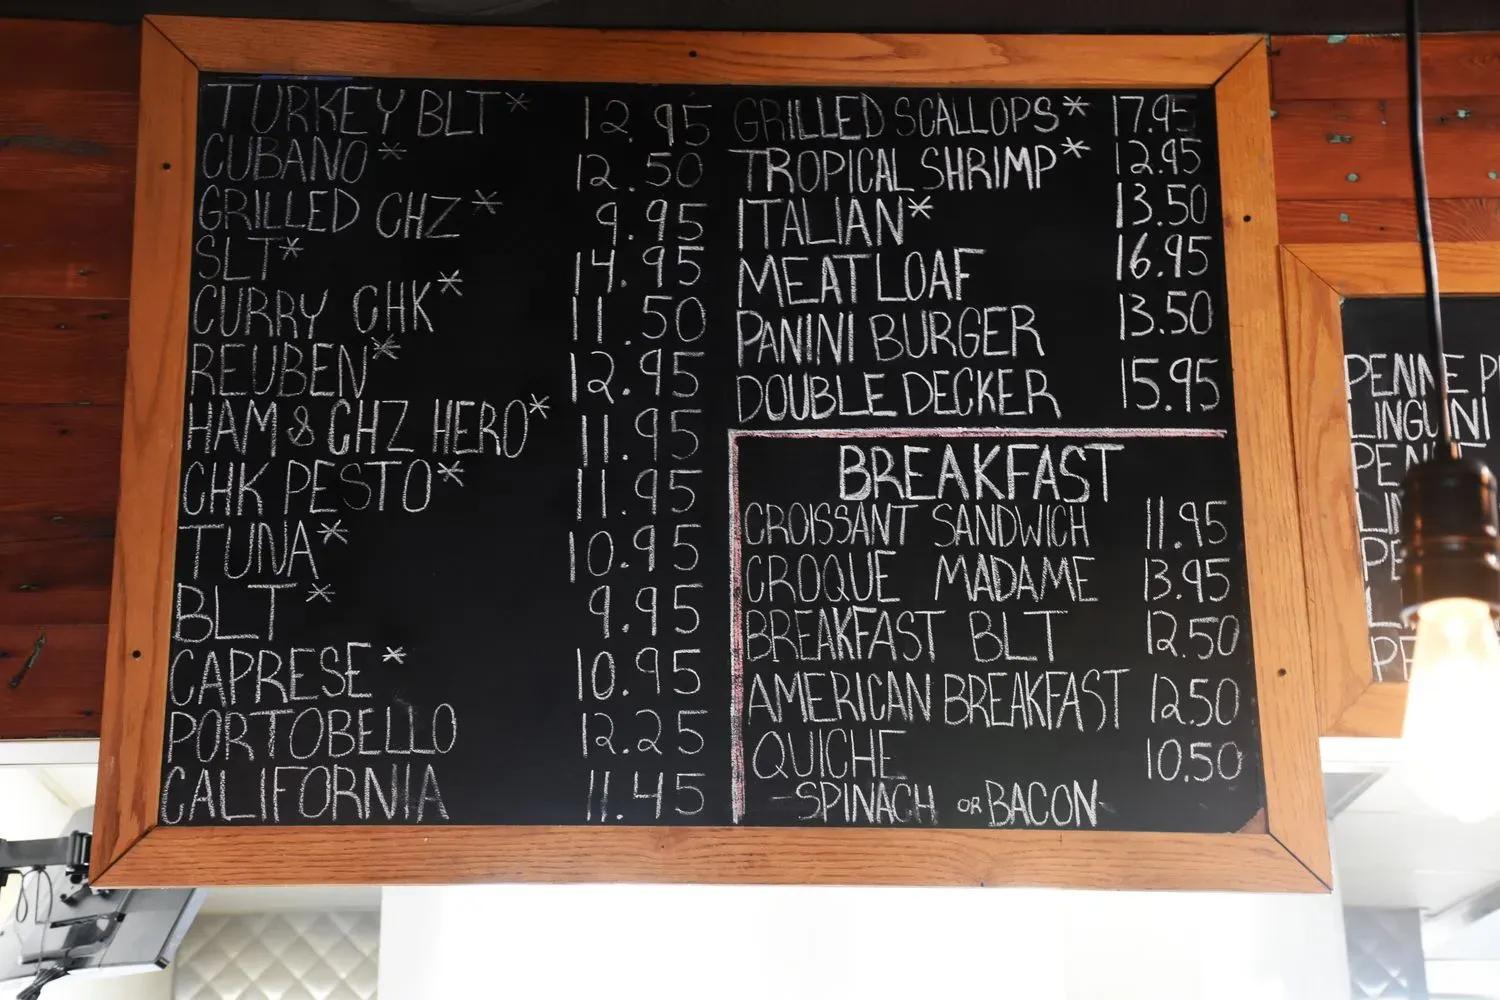 TURKEY BLT* 12.95
CUBANO* 12.50
GRILLED CHZ* 9.95
SLT* 14.95
CURRY CHK* 11.50
REUBEN* 12.95
HAM & CHZ HERO* 11.95
CHK PESTO* 11.95
TUNA* 10.95
BLT* 9.95
CAPRESE* 10.95
PORTOBELLO 12.25
CALIFORNIA 11.45
GRILLED SCALLOPS* 17.95
TROPICAL SHRIMP* 12.95
ITALIAN* 13.50
MEATLOAF 16.95
PANINI BURGER 13.50
DOUBLE DECKER 15.95
BREAKFAST
CROISSANT SANDWICH 11.95
CROQUE MADAME 13.95
BREAKFAST BLT 12.50
AMERICAN BREAKFAST 12.50
QUICHE 10.50
-SPINACH OR BACON-
PENNE
LINGUINI